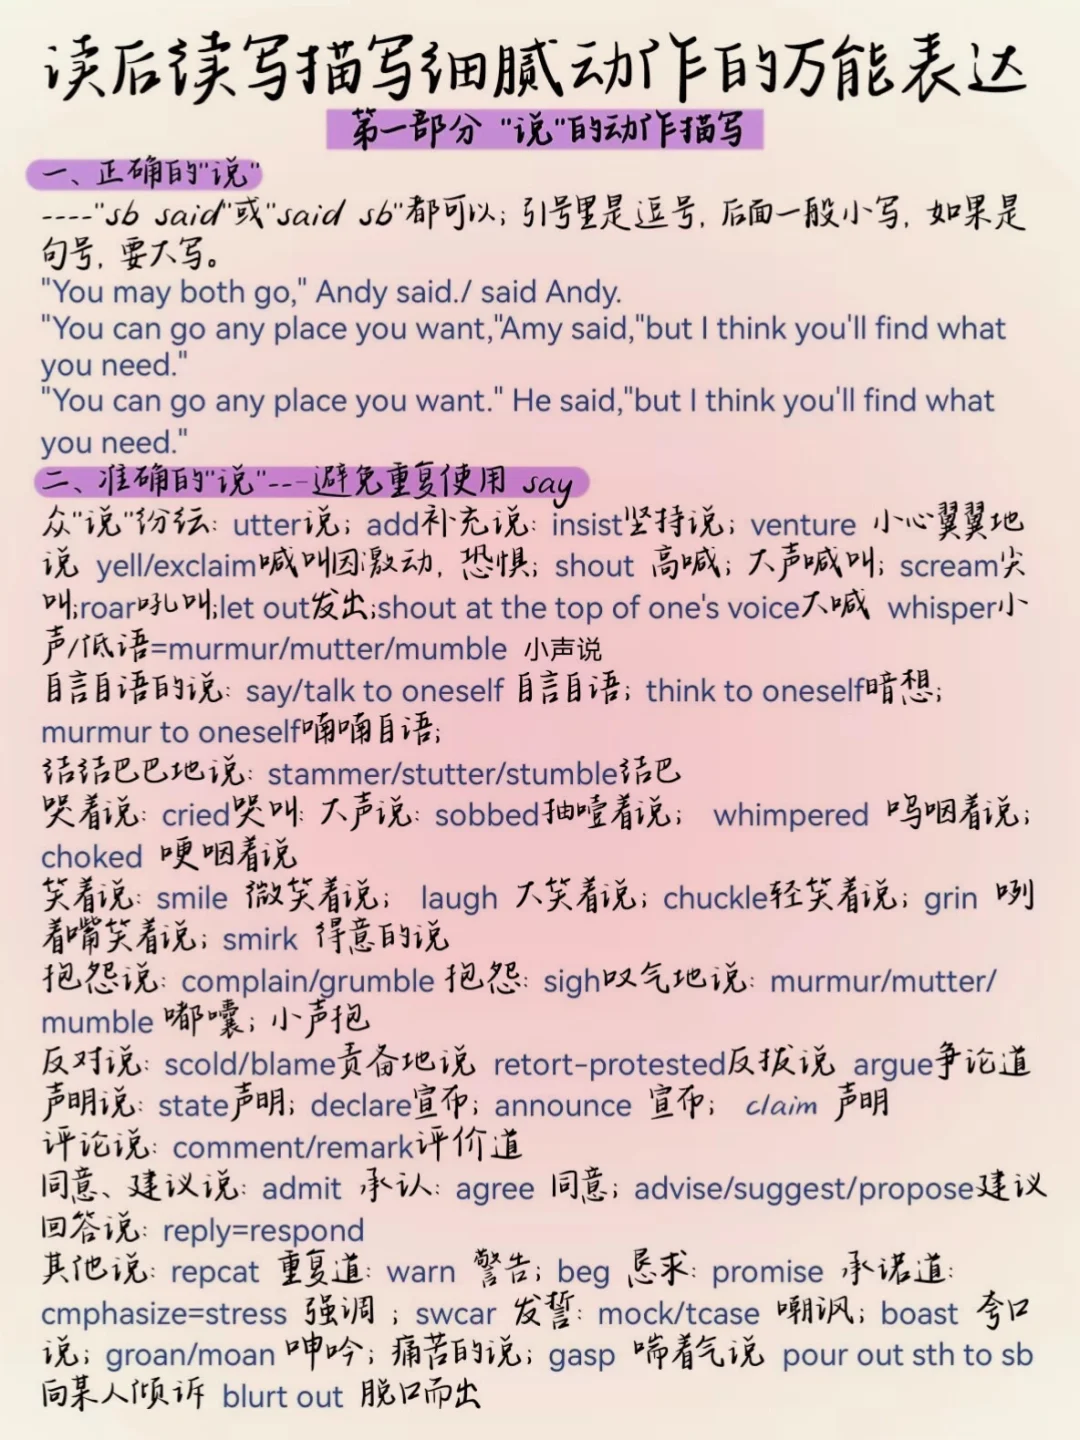 读后续写描写细腻动作的万能表达
第一部分 "说"的动作描写
一、正确的"说"
----"sb said"或"said sb"都可以; 引号里是逗号, 后面一般小写, 如果是
句号, 要大写。
"You may both go," Andy said./ said Andy.
"You can go any place you want,"Amy said,"but I think you'll find what
you need."
"You can go any place you want." He said,"but I think you'll find what
you need."
二、准确的"说"---避免重复使用 say
众"说"纷纭: utter说; add补充说: insist坚持说; venture 小心翼翼地
说 yell/exclaim喊叫因激动, 恐惧; shout 高喊; 大声喊叫; scream尖
叫;roar吼叫;let out发出;shout at the top of one's voice大喊 whisper小
声/低语=murmur/mutter/mumble 小声说
自言自语的说: say/talk to oneself 自言自语; think to oneself暗想;
murmur to oneself喃喃自语;
结结巴巴地说: stammer/stutter/stumble结巴
哭着说: cried哭叫: 大声说: sobbed抽噎着说; whimpered 呜咽着说;
choked 哽咽着说
笑着说: smile 微笑着说; laugh 大笑着说; chuckle轻笑着说; grin 咧
着嘴笑着说; smirk 得意的说
抱怨说: complain/grumble 抱怨: sigh叹气地说: murmur/mutter/
mumble 嘟囔; 小声抱
反对说: scold/blame责备地说 retort-protested反拔说 argue争论道
声明说: state声明; declare宣布; announce 宣布; claim 声明
评论说: comment/remark评价道
同意、建议说: admit 承认: agree 同意; advise/suggest/propose建议
回答说: reply=respond
其他说: repcat 重复道: warn 警告; beg 恳求: promise 承诺道:
cmphasize=stress 强调 ; swcar 发誓: mock/tcase 嘲讽; boast 夸口
说; groan/moan 呻吟; 痛苦的说; gasp 喘着气说 pour out sth to sb
向某人倾诉 blurt out 脱口而出